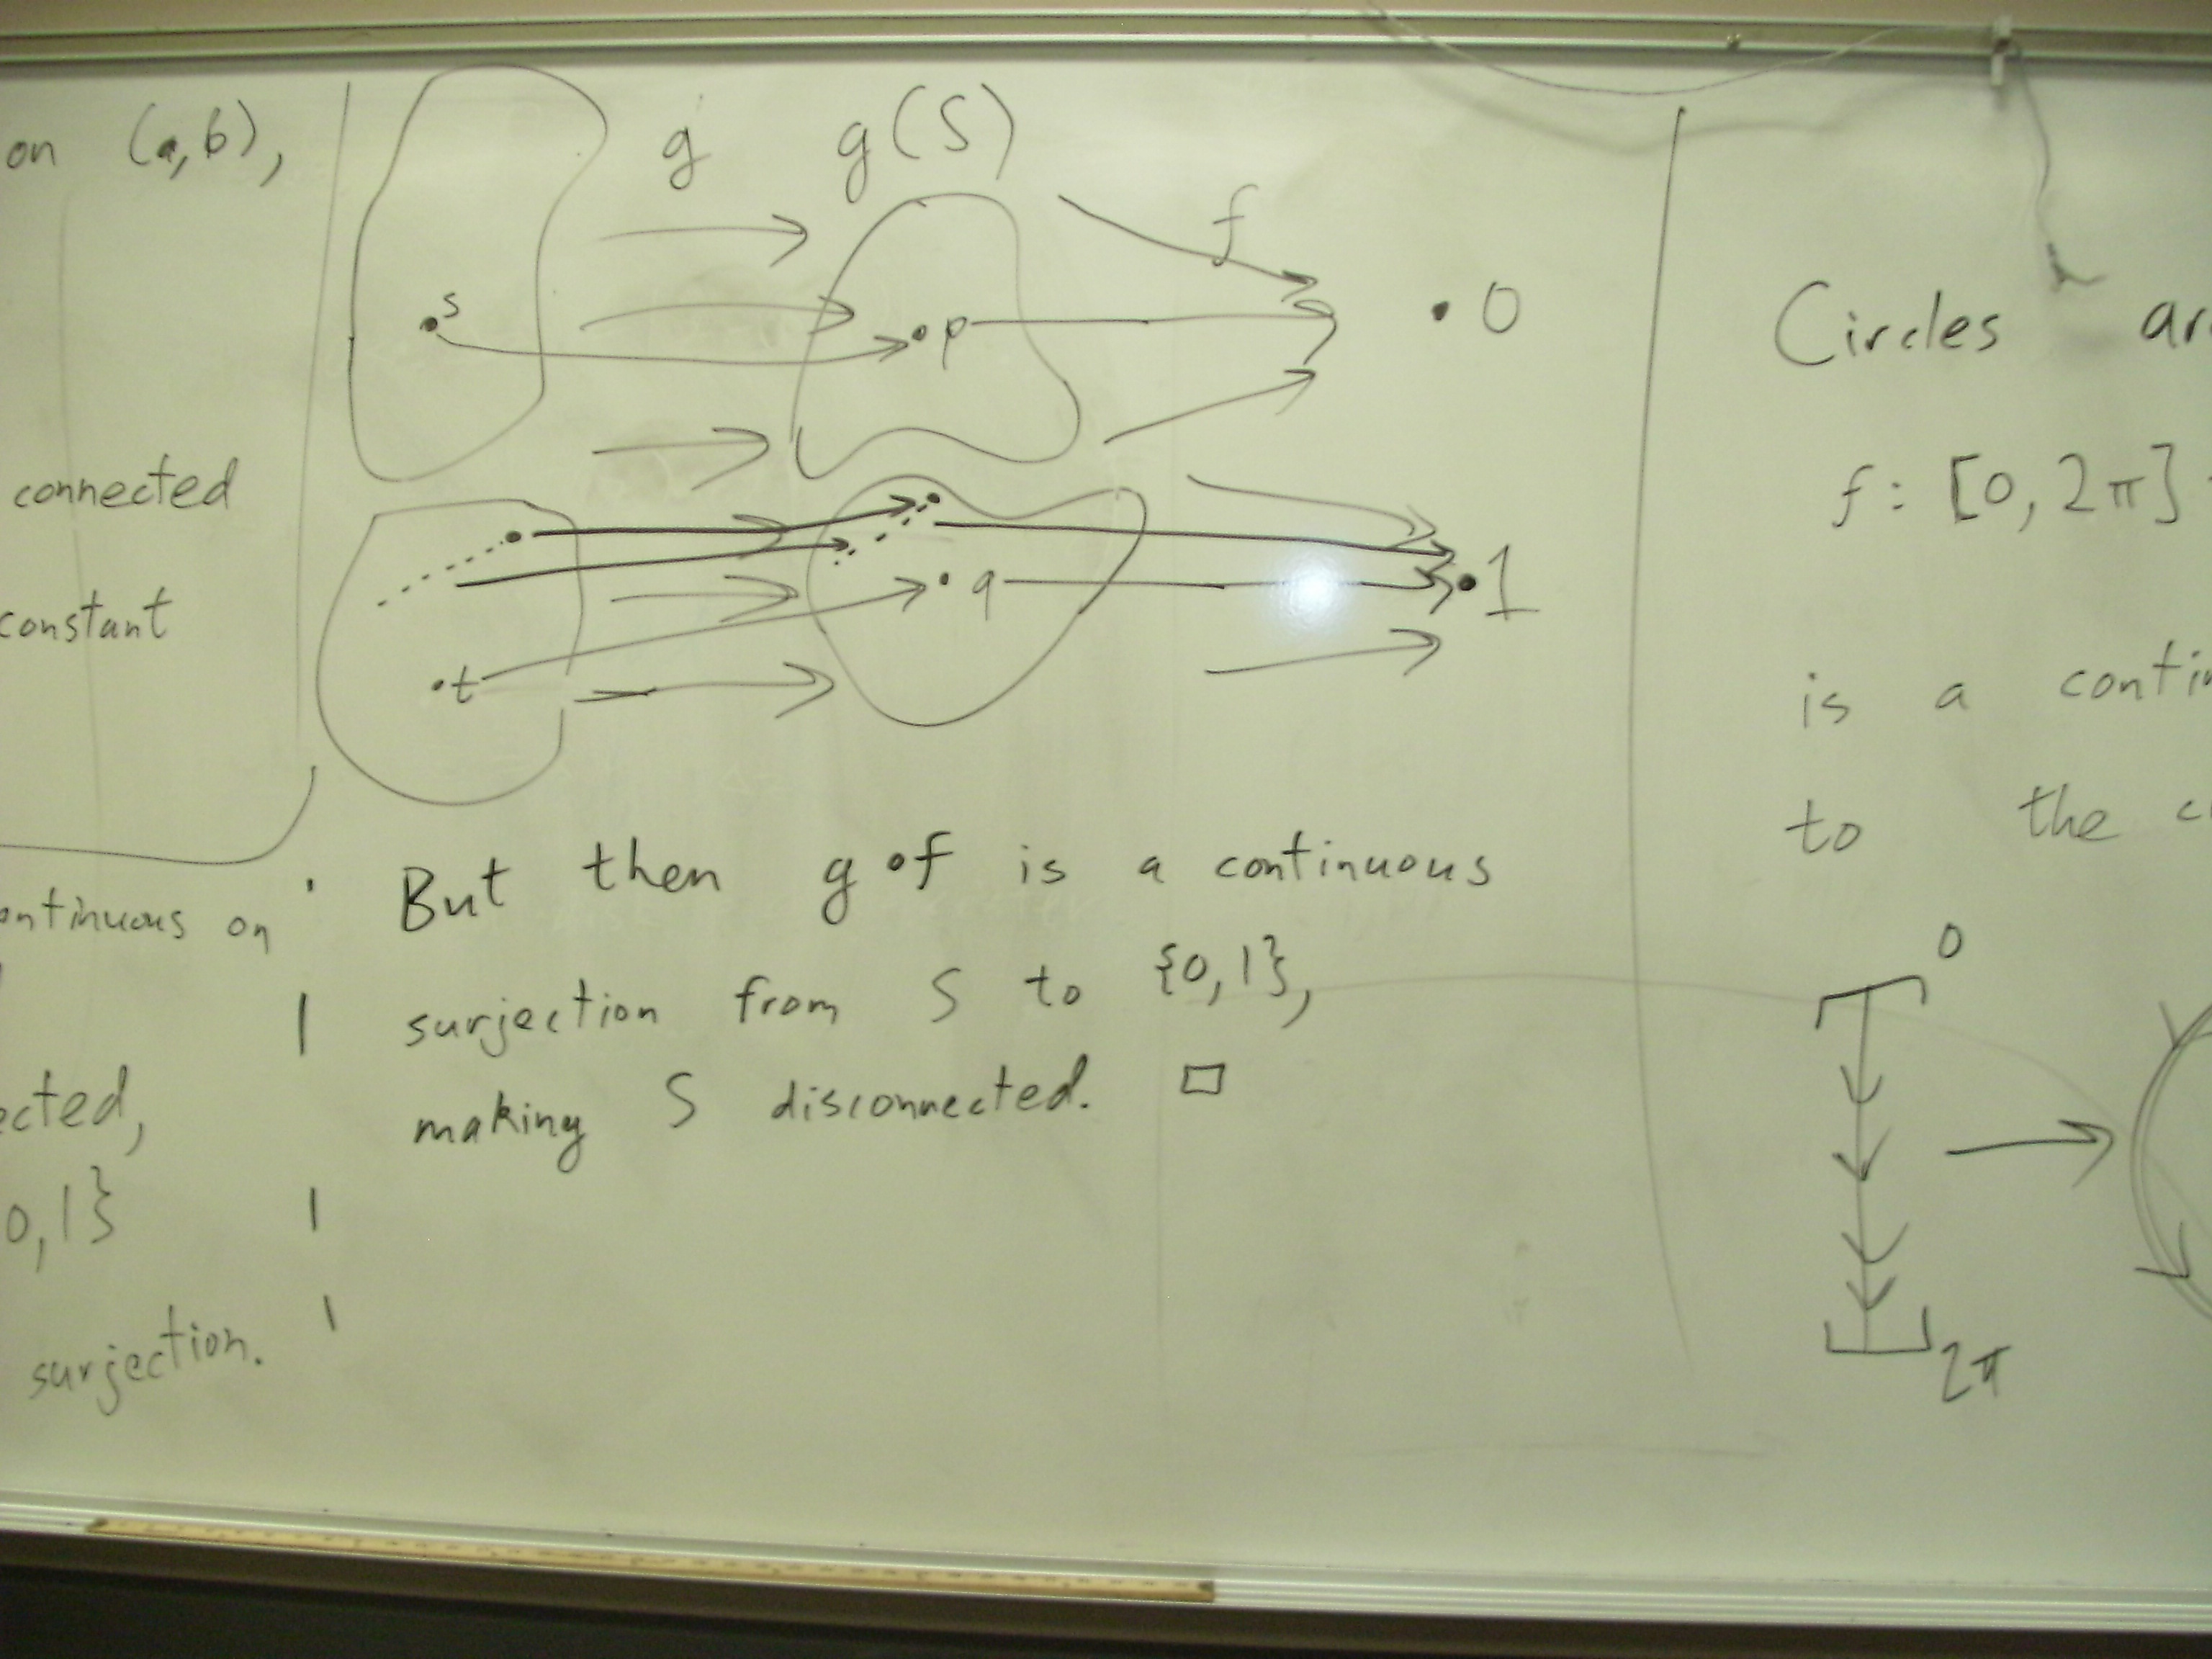 on (a,b),
connected
constant
continuous on
ected,
0,1}
surjection.
g g(S)
f
s
p
0
q
1
t
But then g∘f is a continuous
surjection from S to {0,1},
making S disconnected. □
Circles
f: [0, 2π]
is a
to the
0
2π